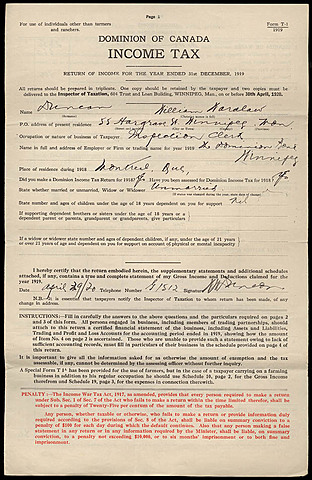 Page 1
For use of individuals other than farmers and ranchers.
Form T-1
1919
DOMINION OF CANADA
INCOME TAX
RETURN OF INCOME FOR THE YEAR ENDED 31st DECEMBER, 1919
All returns should be prepared in triplicate. One copy should be retained by the taxpayer and two copies must be
delivered to the Inspector of Taxation, 604 Trust and Loan Building, WINNIPEG, Man., on or before 30th April, 1920.
Name Duncan William Wardlaw
P.O. address of present residence 55 Hargrave St. Winnipeg Man
Occupation or nature of business of Taxpayer Inspection Clerk
Name in full and address of Employer or Firm or trading name for year 1919 The Dominion
Winnipeg
Place of residence during 1918 Montreal Que.
Did you make a Dominion Income Tax Return for 1918? Have you been assessed for Dominion Income Tax for 1918?
State whether married or unmarried, Widow or Widower Unmarried
State number and ages of children under the age of 18 years dependent on you for support nil
If supporting dependent brothers or sisters under the age of 18 or a
dependent parent or parents, grandparent or grandparents, give particulars
If a widow or widower state number and ages of dependent children, if any, under the age of 21 years
or over 21 years of age and dependent on you for support on account of physical or mental incapacity
I hereby certify that the return embodied herein, the supplementary statements and additional schedules
attached, if any, contains a true and complete statement of my Gross Income and Deductions claimed for the
year 1919.
Date April 29/20 Telephone Number G1512 Signature
N.B.—It is essential that taxpayers notify the Inspector of Taxation to whom return has been made, of any
change in address.
INSTRUCTIONS:—Fill in carefully the answers to the above questions and the particulars required on pages 2
and 3 of this form. All persons engaged in business, including members of trading partnerships, should
attach to this return a certified financial statement of the business, including Assets and Liabilities,
Trading and Profit and Loss Accounts for the accounting period ended in 1919, showing how the amount
of Item No. 4 on page 2 is ascertained. Those who are unable to provide such a statement owing to lack of
sufficient accounting records, must fill in particulars of their business in the schedule provided on page 4 of
this return.
It is important to give all the information asked for as otherwise the amount of exemption and the tax
assessable, if any, cannot be determined by the assessing officer without further inquiry.
A Special Form T 1A has been provided for the use of farmers, but in the case of a taxpayer carrying on a farming
business in addition to his regular occupation he should use Schedule 18, page 2, for the Gross Income
therefrom and Schedule 19, page 3, for the expenses in connection therewith.
PENALTY:—The Income War Tax Act, 1917, as amended, provides that every person required to make a return
under Sub. Sec. 1 of Sec. 7 of the Act who fails to make a return within the time limited therefor, shall be
subject to a penalty of Twenty-Five per centum of the amount of the tax payable.
Any person, whether taxable or otherwise, who fails to make a return or provide information duly
required according to the provisions of Sec. 8 of the Act, shall be liable on summary conviction to a
penalty of $100 for each day during which the default continues. Also that any person making a false
statement in any return or in any information required by the Minister, shall be liable, on summary
conviction, to a penalty not exceeding $10,000, or to six months' imprisonment or to both fine and
imprisonment.